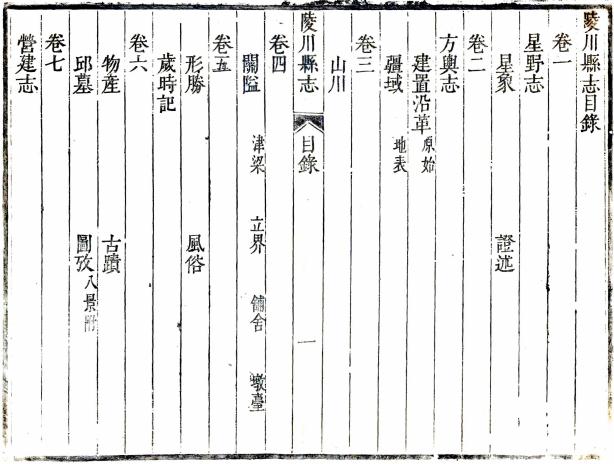 陵川縣志目錄
卷一
星野志
星象 證述
卷二
方輿志
建置沿革 原始
疆域 地表
卷三
山川
陵川縣志 目錄 一
卷四
關隘 津梁 立界 鋪舍 墩臺
卷五
形勝 風俗
歲時記
卷六
物産 古蹟
邱墓 圖攷 八景附
卷七
營建志